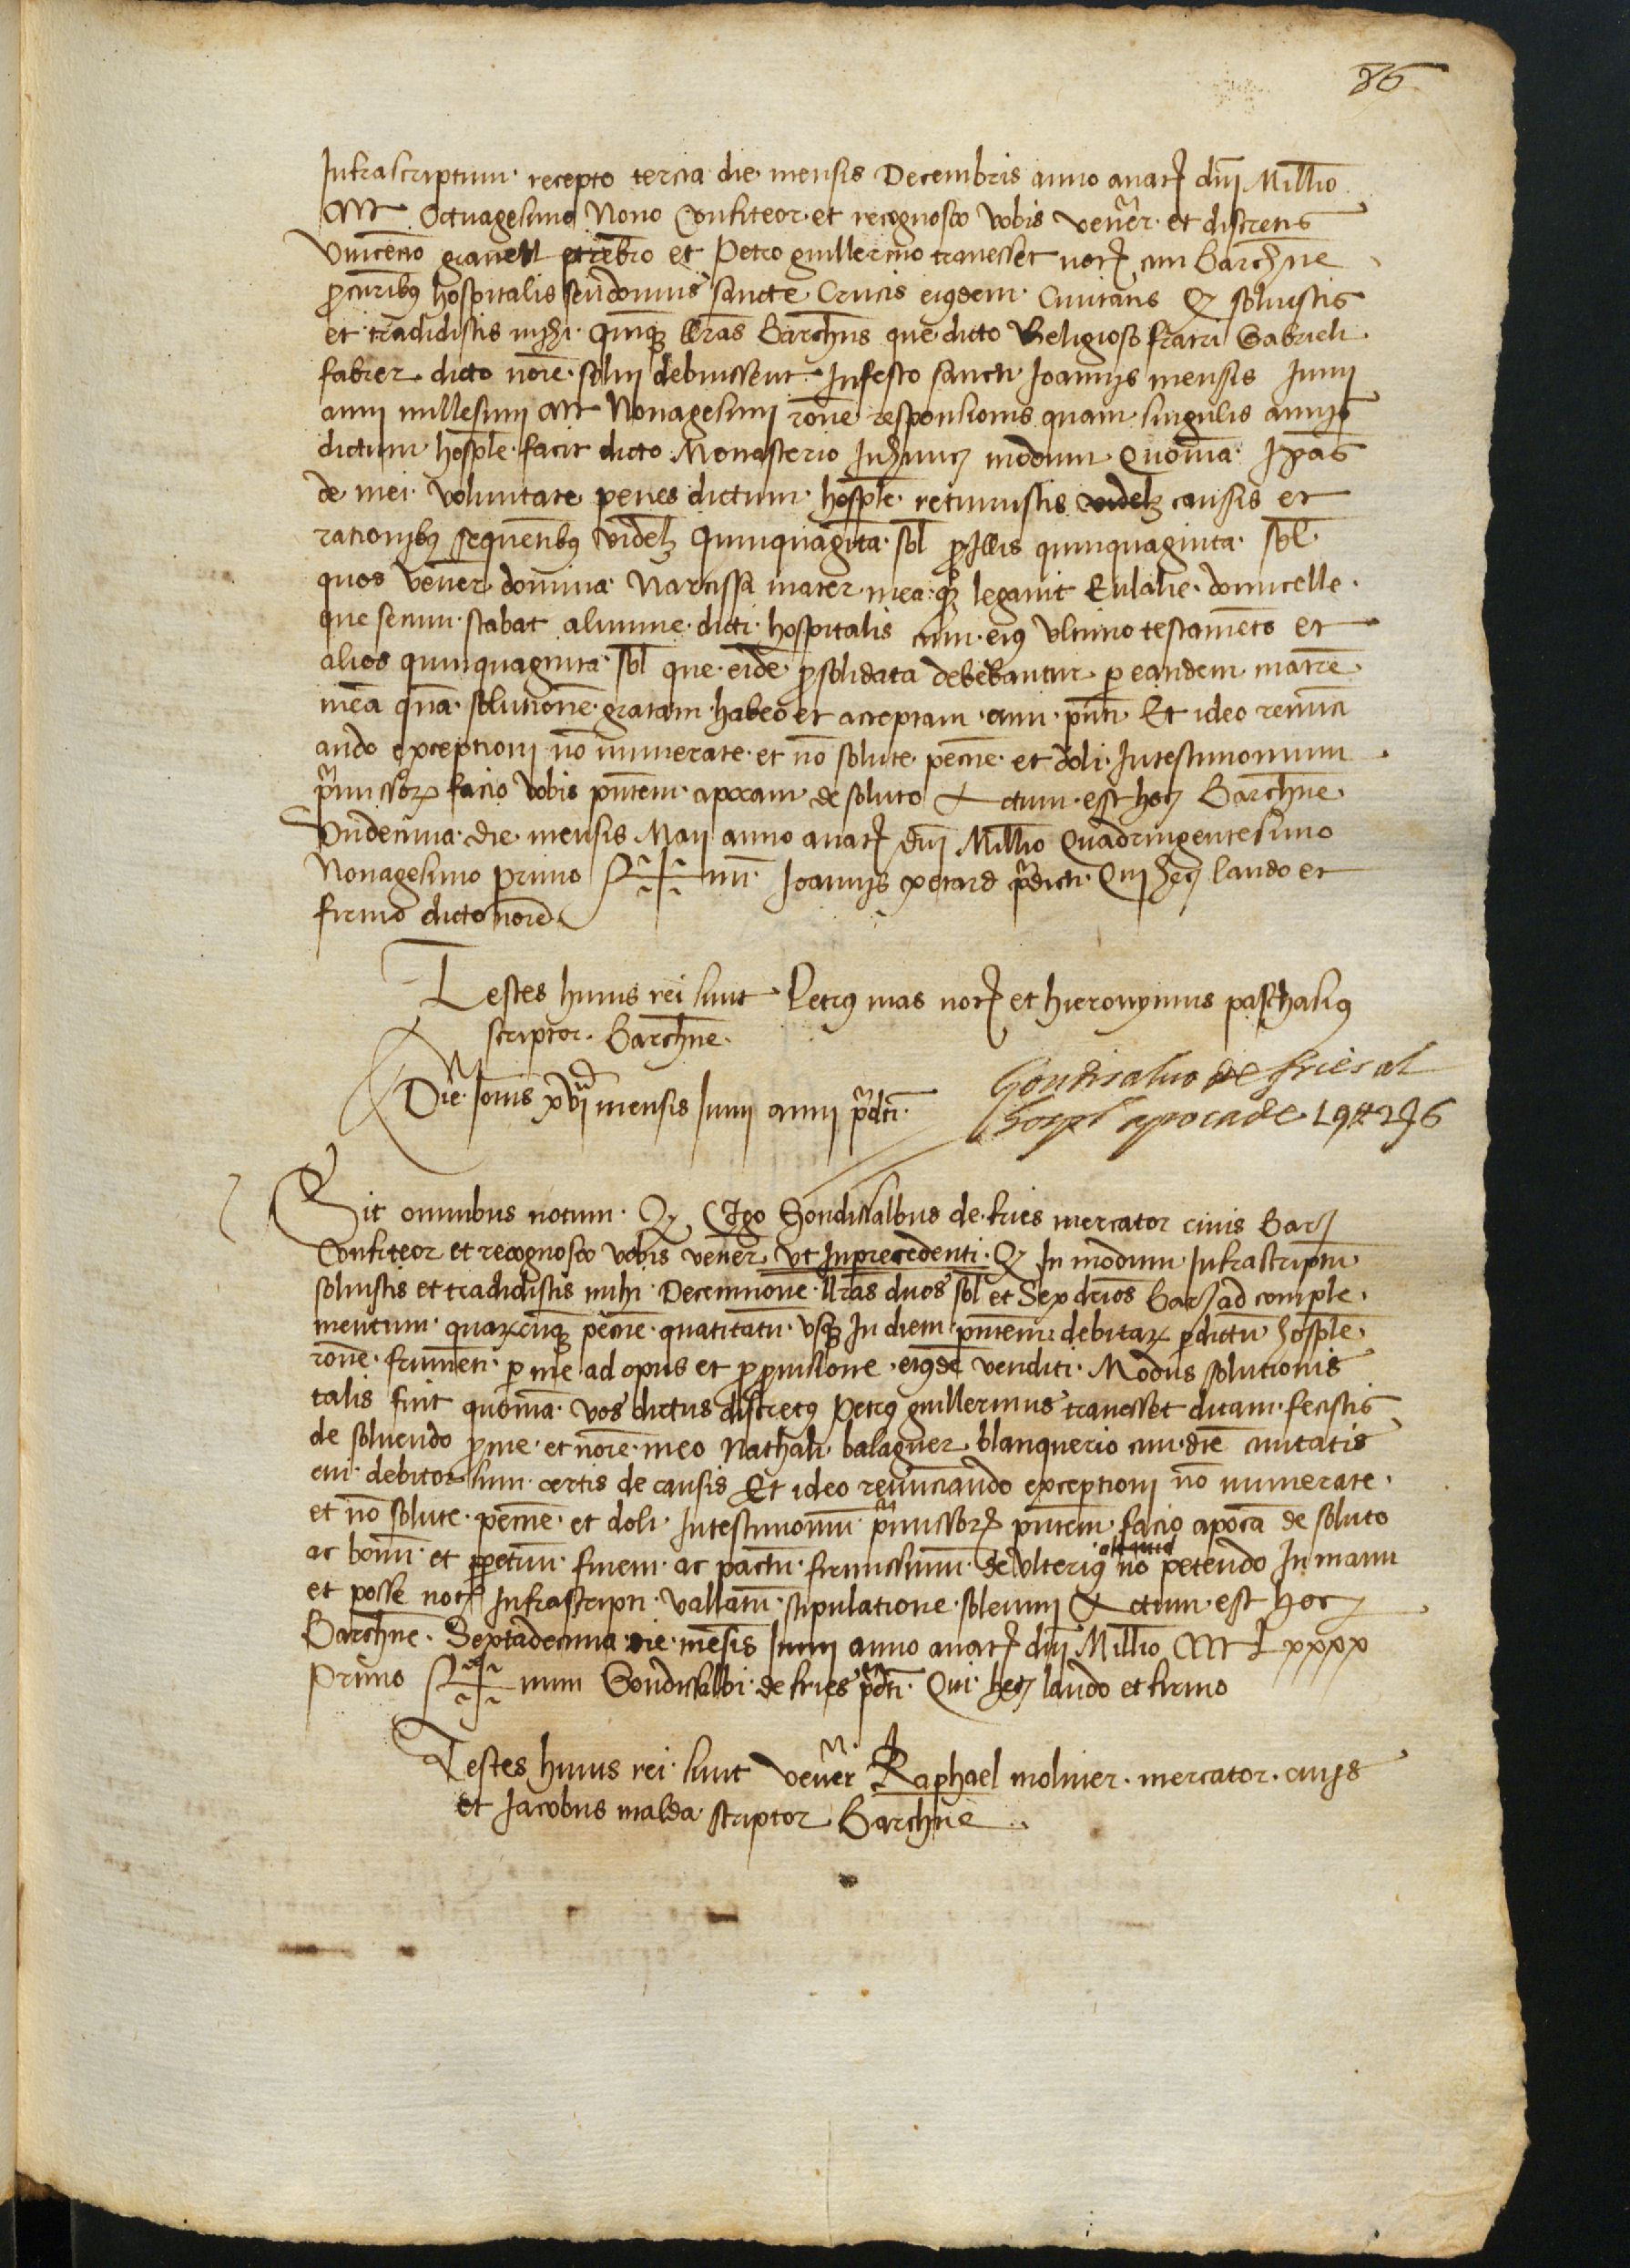 86
Infrascriptum recepto tercia die mensis Decembris anno a natt dni Millio
CCCC Octuagesimo Nono Confiteor et recognosco vobis vener et discretis
Vincencio granell et Petro guillermo travesset nott civi Barchne
procuribus hospitalis seu domus sancte Crucis eiusdem Civitatis Q solvistis
et tradidistis michi Quinque llras Barchns que dicto Religioso fratri Gabrieli
fabrer dicto noie solvi debuissent In festo sancti Ioannis mensis Iunii
anni millesimi CCCC Nonagesimi rone responsionis quam singulis annis
dictum hosple facit dicto Monasterio In hunc modum Quoniam Ipas
de mei voluntate penes dictum hosple retinuistis videlz causis et
rationibus sequentibus videlz Quinquaginta sol pro Illis quinquaginta sol
quos vener domina Narcissa mater mea legavit Eulalie domicelle
que secum stabat alumne dicti hospitalis cum eius ultimo testamento et
alios quinquaginta sol que eidem pro solidata debebantur per eandem matre
mea qua solutione gratam habeo et acceptam cum pnti Et ideo renunci
ando exceptioni no numerate et no solute pecnie et doli In testimonium
premissor facio vobis pntem apocam de soluto Actum est hoc Barchne
Undecima die mensis Maii anno a natt dni Millio Quadringentesimo
Nonagesimo primo Sig+num Ioannis petard predicti Qui hec laudo et
firmo dicto noie
Testes huius rei sunt Petrus mas nott et hieronymus paschasius
scriptor Barchne
Die Iovis xvi mensis Iunii anni predci
Gondisalvo de fries al
hospl apoca de 19 ₶ 2 ß 6
Sit omnibus notum Q Ego Gondissalbus de fries mercator civis Bar
Confiteor et recognosco vobis vener ut In precedenti Q In modum Infrascriptu
solvistis et tradidistis mihi Decemnove llras duos sol et Sex drios Bar ad comple
mentum quarcunque pecnie quatitatu usque In diem pntem debitar per dictu hosple
rone frumenti per me ad opus et pro provisione eiusde venditi Modus solutionis
talis fuit quoniam vos dictus discretus Petrus guillermus travesset dictam fecistis
de solvendo pro me et noie meo Nathali balaguer blanquerio civi dicte civitatis
cui debitor sum certis de causis Et ideo renunciando exceptioni no numerate
et no solute pecnie et doli In testimoniu premissor pntem facio apoca de soluto
ac bonu et perpetuu finem ac pactu firmissimu de ulterius no petendo In manu
et posse nott Infrascripti vallatu stipulatione solemni Actum est hoc
Barchne Sextadecima die mensis Iunii anno a natt dni Millio CCCC Lxxxx
Primo Sig+num Gondissalbi de fries predci Qui hec laudo et firmo
Testes huius rei sunt vener Raphael moliner mercator civis
et Iacobus malda scriptor Barchne